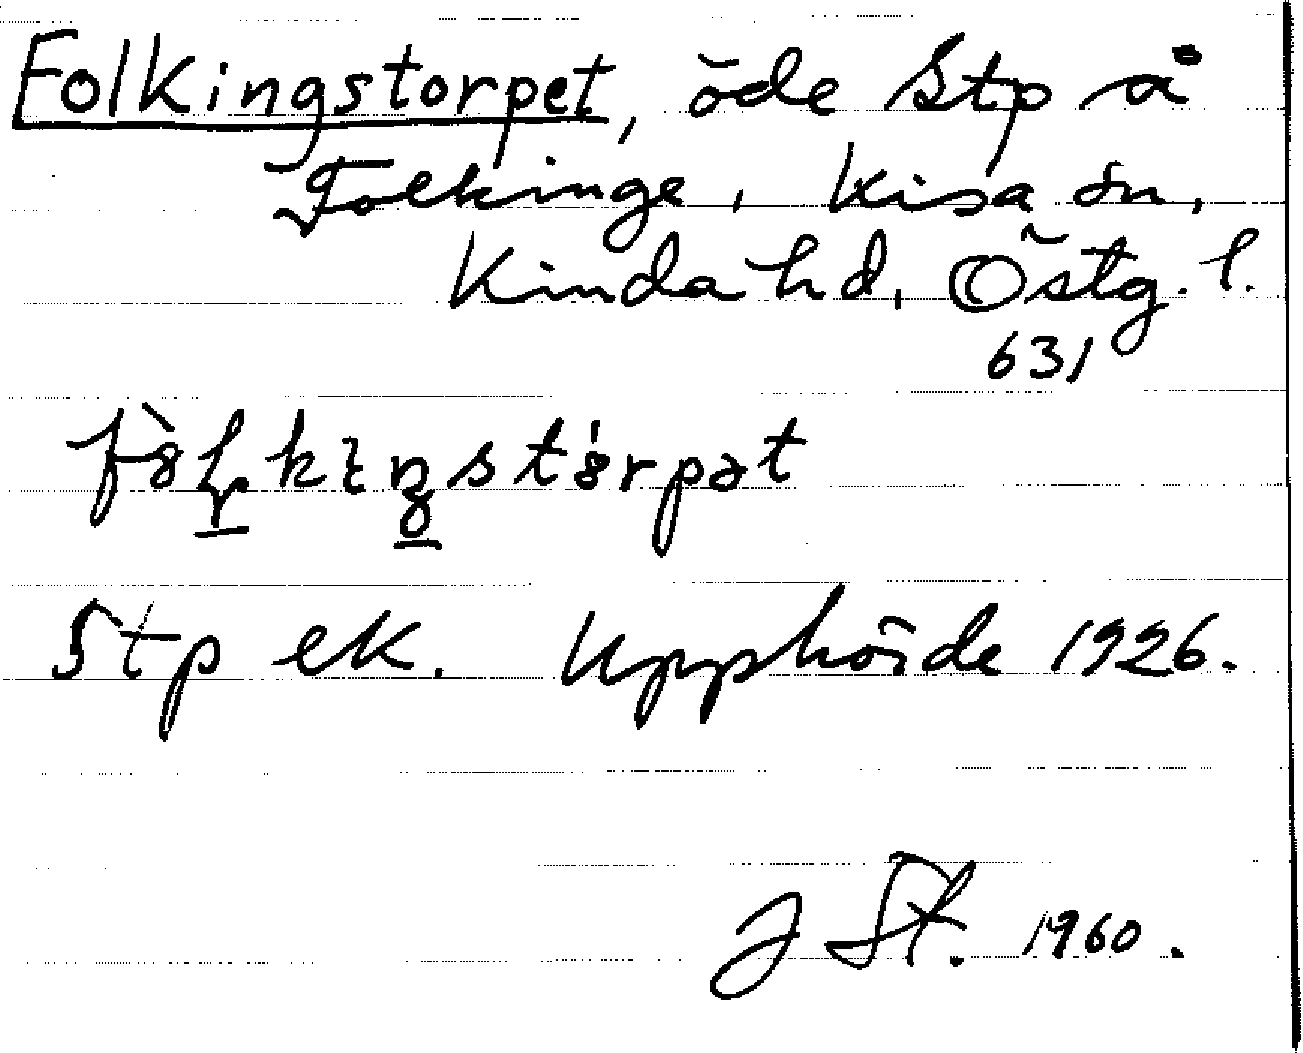 Folkingstorpet, öde Stp å
Folkinge, Kisa sn,
Kinda hd, Östg. l.
631
Stp ek. Upphörde 1926.
J St. 1960.